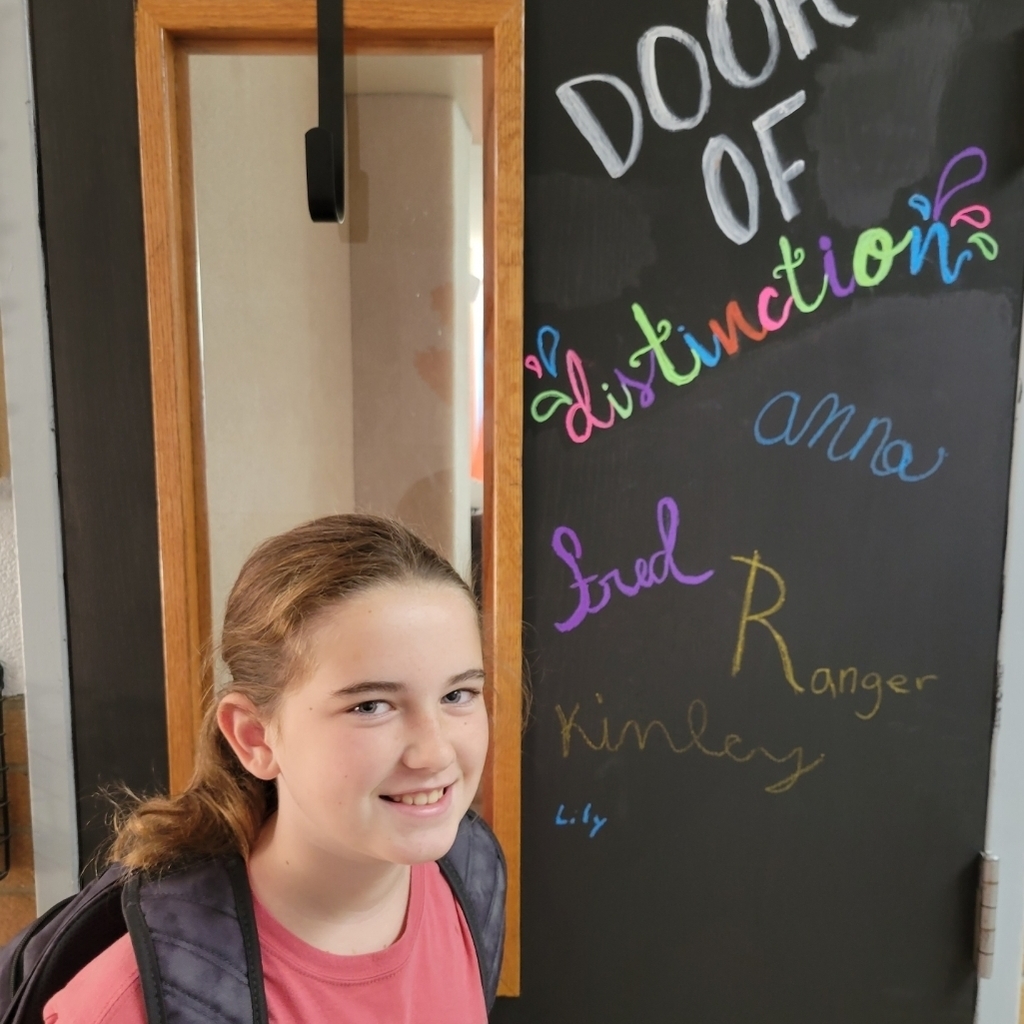 DOOR
OF
distinction
anna
fred
Ranger
Kinley
Lily